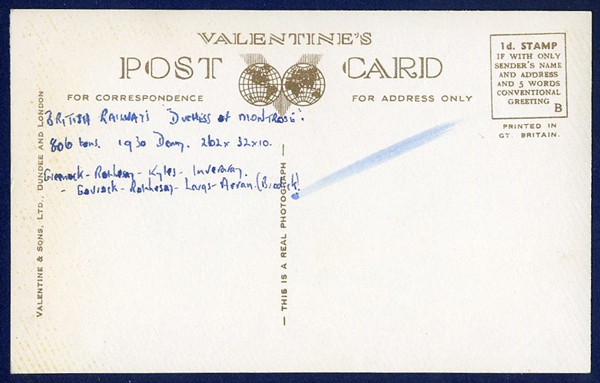 VALENTINE'S
POST CARD
FOR CORRESPONDENCE
FOR ADDRESS ONLY
1d. STAMP
IF WITH ONLY
SENDER'S NAME
AND ADDRESS
AND 5 WORDS
CONVENTIONAL
GREETING B
PRINTED IN
GT. BRITAIN.
BRITISH RAILWAYS "DUCHESS OF MONTROSE".
806 tons. 1930 Denny. 262 x 32 x 10.
Greenock - Rothesay - Kyles - Inveraray.
- Gourock - Rothesay - Largs - Arran. (Brodick).
VALENTINE & SONS, LTD., DUNDEE AND LONDON
— THIS IS A REAL PHOTOGRAPH —